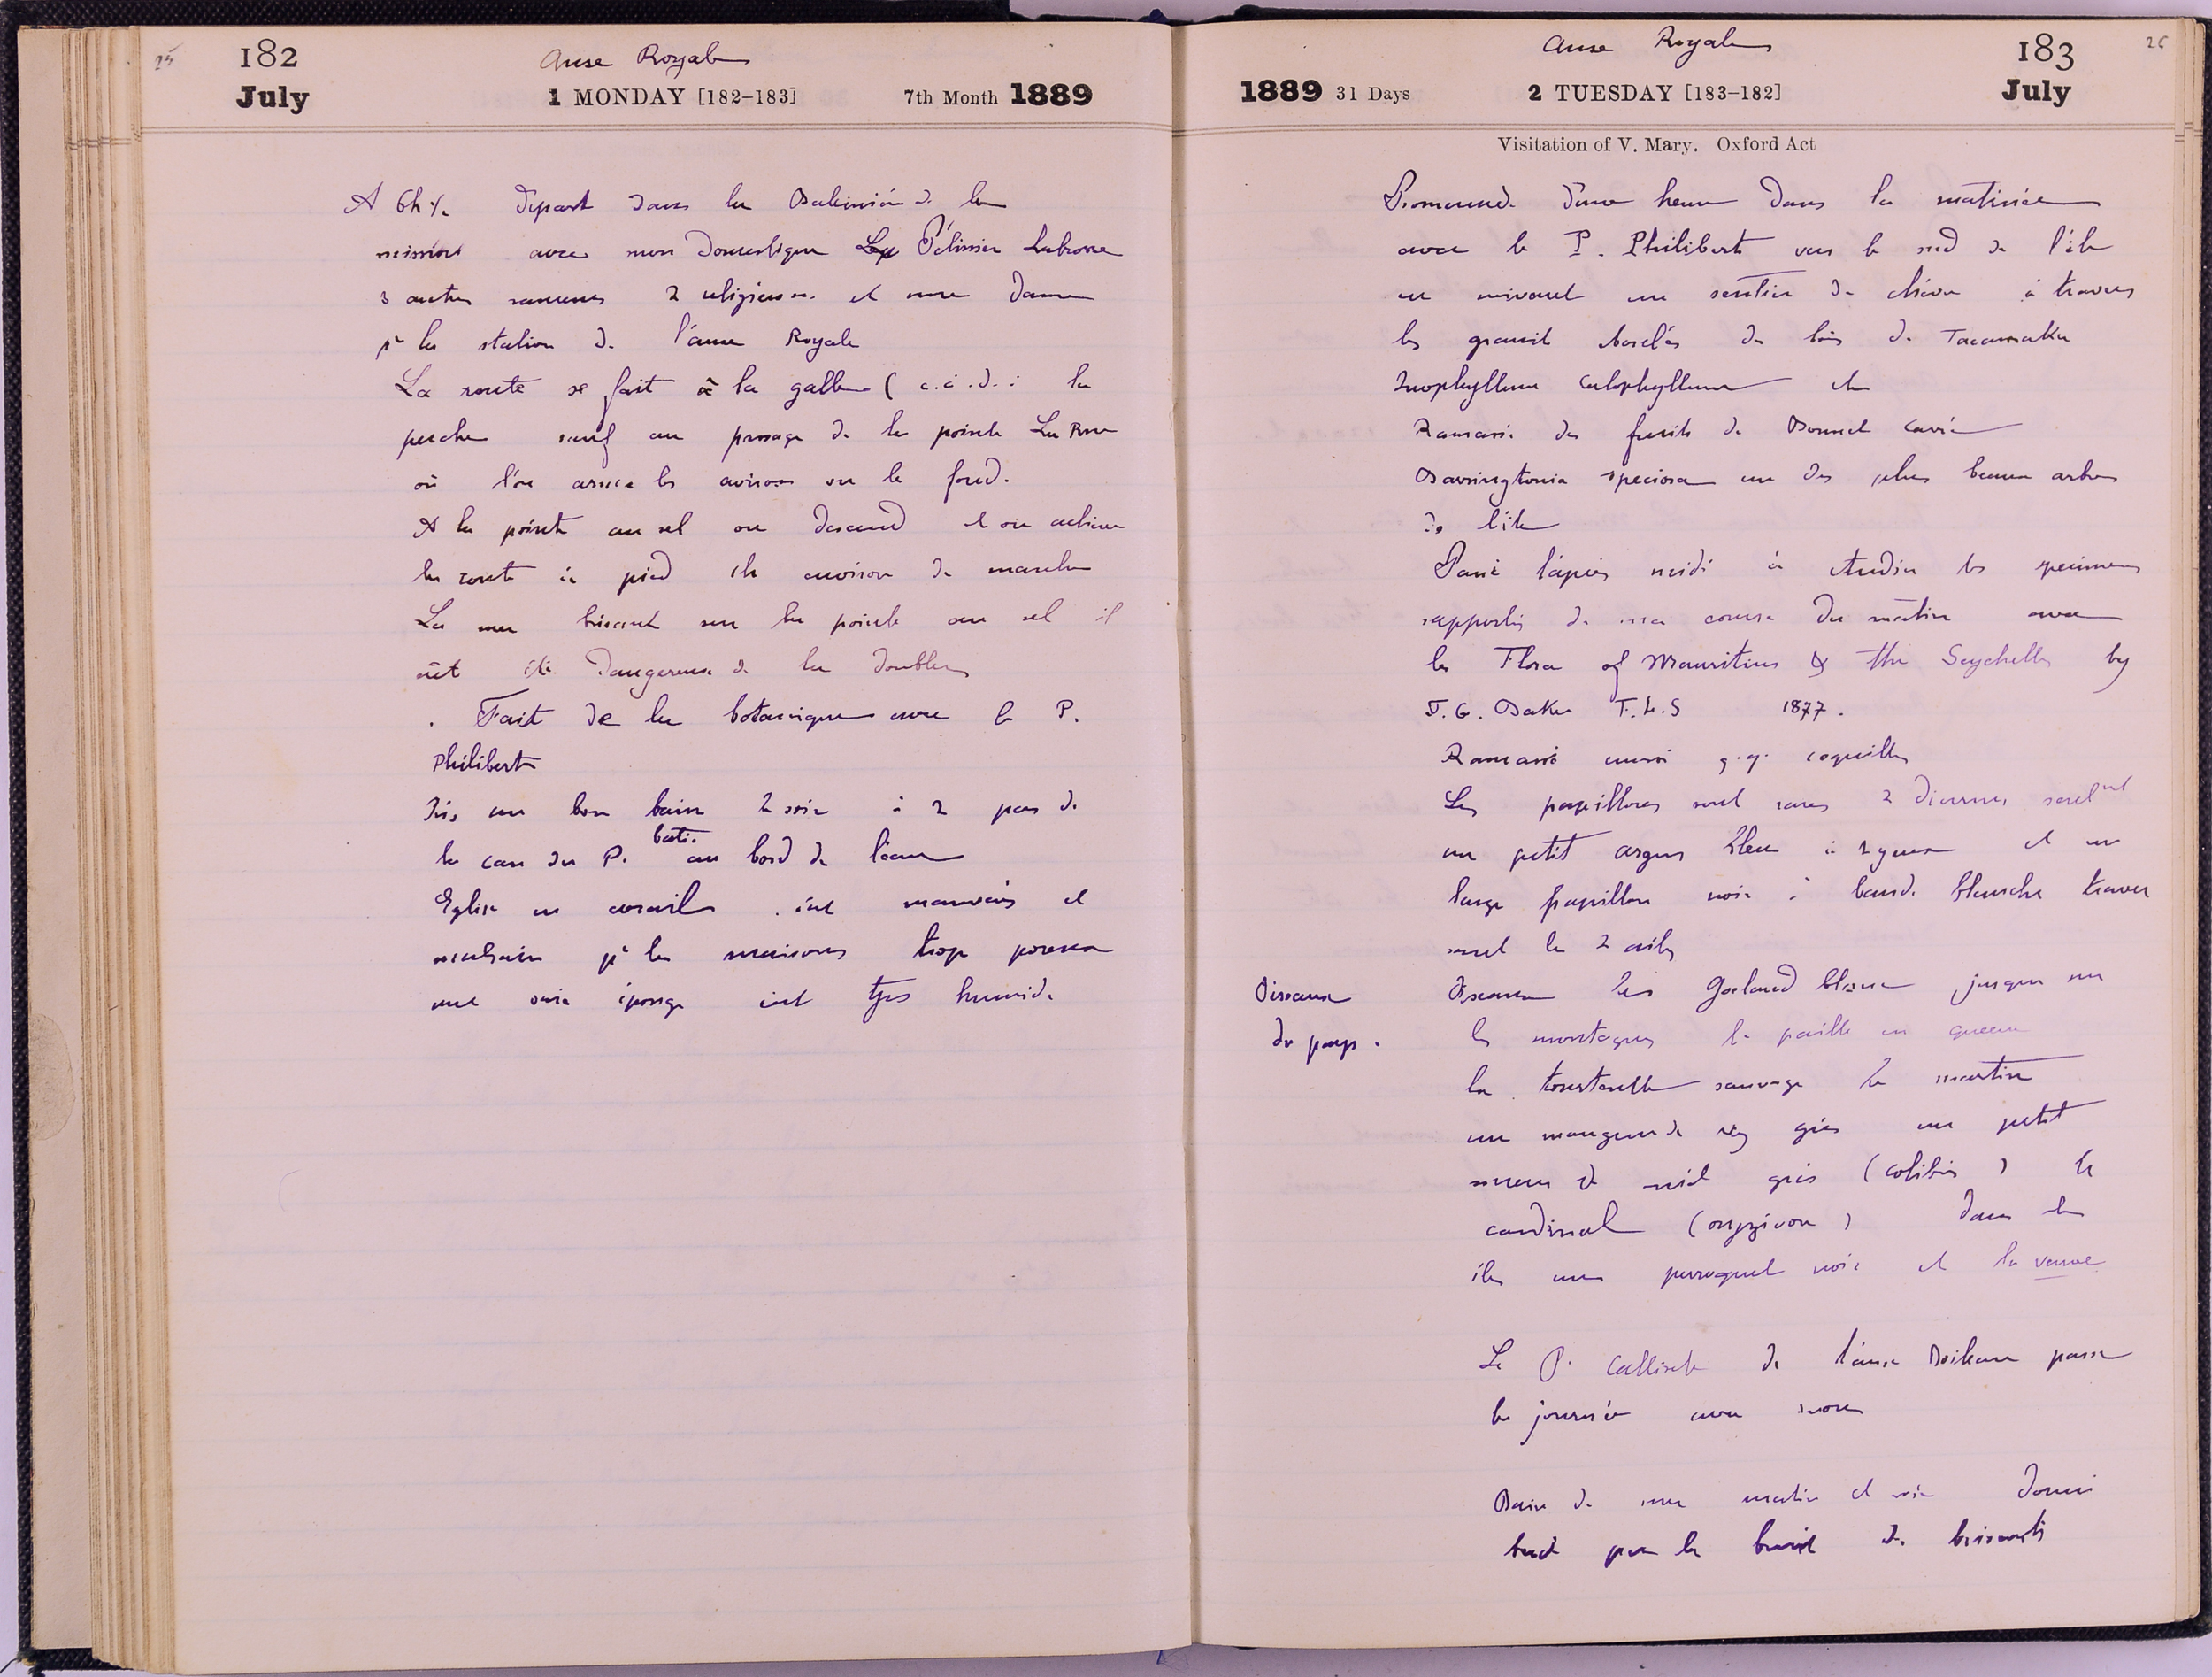 25
182
Anse Royale
July
1 MONDAY [182–183]
7th Month 1889
A 6h ½ départ dans la Baleinière de la
mission avec mon domestique Pélissier Labrosse
3 autres rameurs 2 religieuses et une dame
pr la station de l'anse Royale
La route se fait à la gaffe (c.à.d.: la
perche sauf au passage de la pointe La Rue
où l'on arme les avirons vu le fond.
A la pointe au sel on descend et on achève
la route à pied 1h environ de marche
La mer brisant sur la pointe au sel il
eût été dangereux de la doubler
. Fait de la botanique avec le P.
Philibert
Pris un bon bain le soir à 2 pas de
la case du P. bâtie au bord de l'eau
Eglise en corail. est mauvais et
malsain pr les maisons trop poreux
une vraie éponge est très humide
26
Anse Royale
183
1889 31 Days
2 TUESDAY [183–182]
July
Visitation of V. Mary. Oxford Act
Promenade d'une heure dans la matinée
avec le P. Philibert vers le sud de l'île
en suivant un sentier de chèvre à travers
les granit bordés de bois de Tacamaka
Inophyllum Calophyllum etc
Ramassé des fruits de Bonnet carré
Barringtonia speciosa un des plus beaux arbres
de l'île
Passé l'après midi à étudier les specimens
rapportés de ma course du matin avec
la Flora of Mauritius & the Seychelles by
J. G. Baker F.L.S 1877.
Ramassé aussi q.q. coquilles
Les papillons sont rares 2 diurnes seulent
un petit argus bleu à 2 yeux et un
large papillon noir à bande blanche traver
sant les 2 ailes
Oiseaux
du pays.
Oiseaux les Goeland blanc jusque sur
les montagnes le paille en queue
la tourterelle sauvage le martin
un mangeur de riz gris un petit
suceur de miel gris (colibri) le
cardinal (oryzivore) dans les
îles un perroquet noir et la veuve
Le P. Calliste de l'anse Boileau passe
la journée avec nous
Bain de mer matin et soir Dormi
bercé par le bruit des brisants